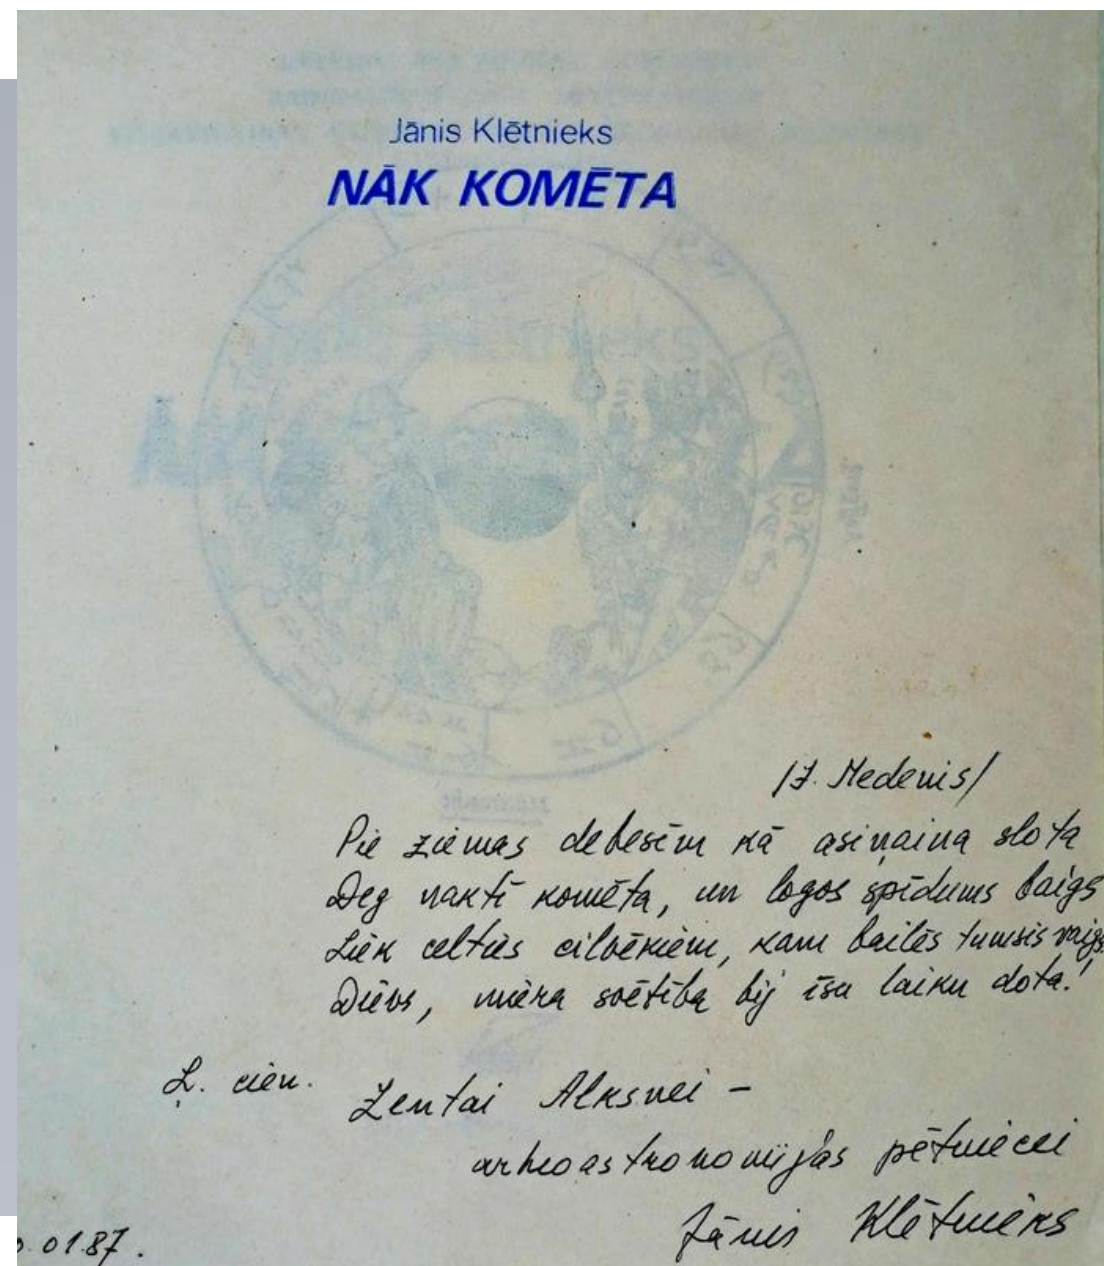 Jānis Klētnieks
NĀK KOMĒTA
/J. Medenis/
Pie ziemas debesīm kā asiņaina slota
Deg naktī komēta, un logos spīdums baigs
Liek celties cilvēkiem, kam bailēs tumsis vaigs.
Dievs, miera svētība bij īsu laiku dota!
Ļ. cien. Zentai Alksnei –
arheoastronomijas pētniecei
Jānis Klētnieks
01.87.